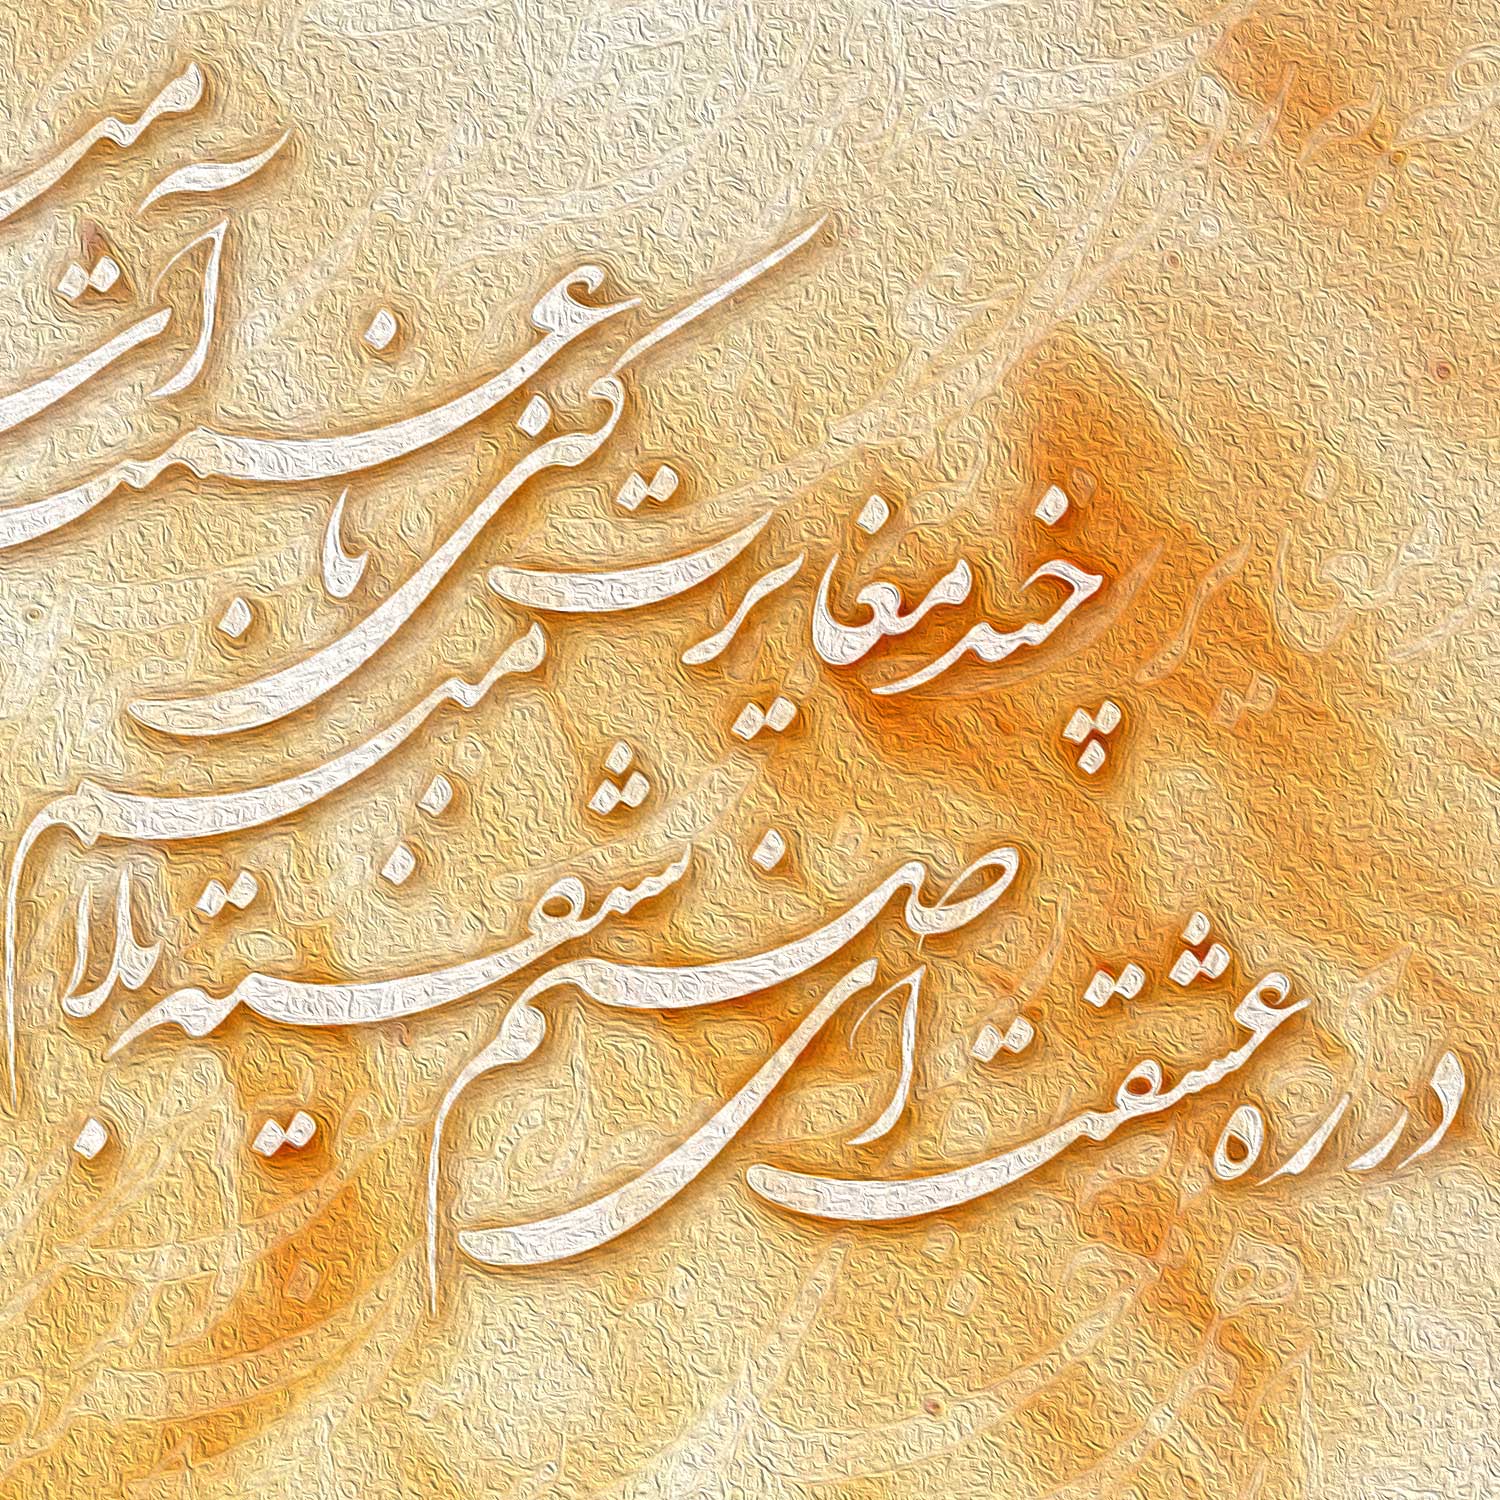 در ره عشقت ای صنم شیفته بلا منم
چند مغایرت کنی با غمت